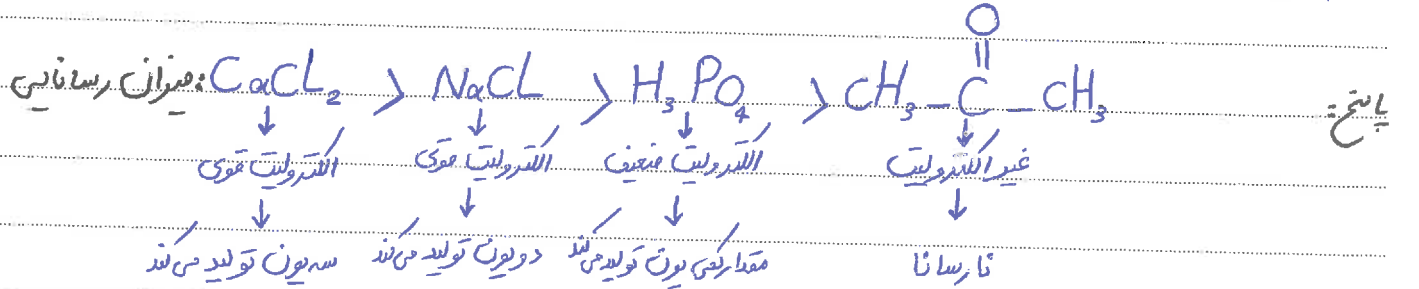 پاسخ:
میزان رسانایی: CaCl₂ > NaCl > H₃PO₄ > CH₃-C(=O)-CH₃
↓ ↓ ↓ ↓
الکترولیت قوی الکترولیت قوی الکترولیت ضعیف غیر الکترولیت
↓ ↓ ↓ ↓
سه یون تولید می‌کند دو یون تولید می‌کند مقدار کمی یون تولید می‌کند نارسانا